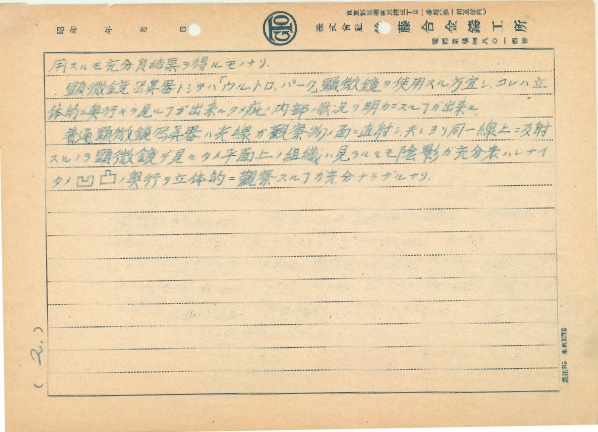 昭 年 月 日
株式會社 藤合金鑄工所
用スルモ充分良結果ヲ得ルモノナリ.
顕微鏡写真器トシテハ「ウルトロ、パーク」顕微鏡ヲ使用スル方宜シ、コレハ立
体的ニ奥行キヲ見ルコトガ出来ルタメ疵ノ内部ノ状況ヲ明カニスルコトガ出来ル
普通顕微鏡写真器ハ光線ガ観察物ノ面ニ直射シ、夫レヨリ同一線上ニ反射
スルノヲ顕微鏡デ見ルタメ平面上ノ組織ハ見ラルルモ陰影ガ充分表ハレナイ
タメ凹凸ノ奥行ヲ立体的ニ観察スルコトガ充分ナラザルナリ.
(2.)